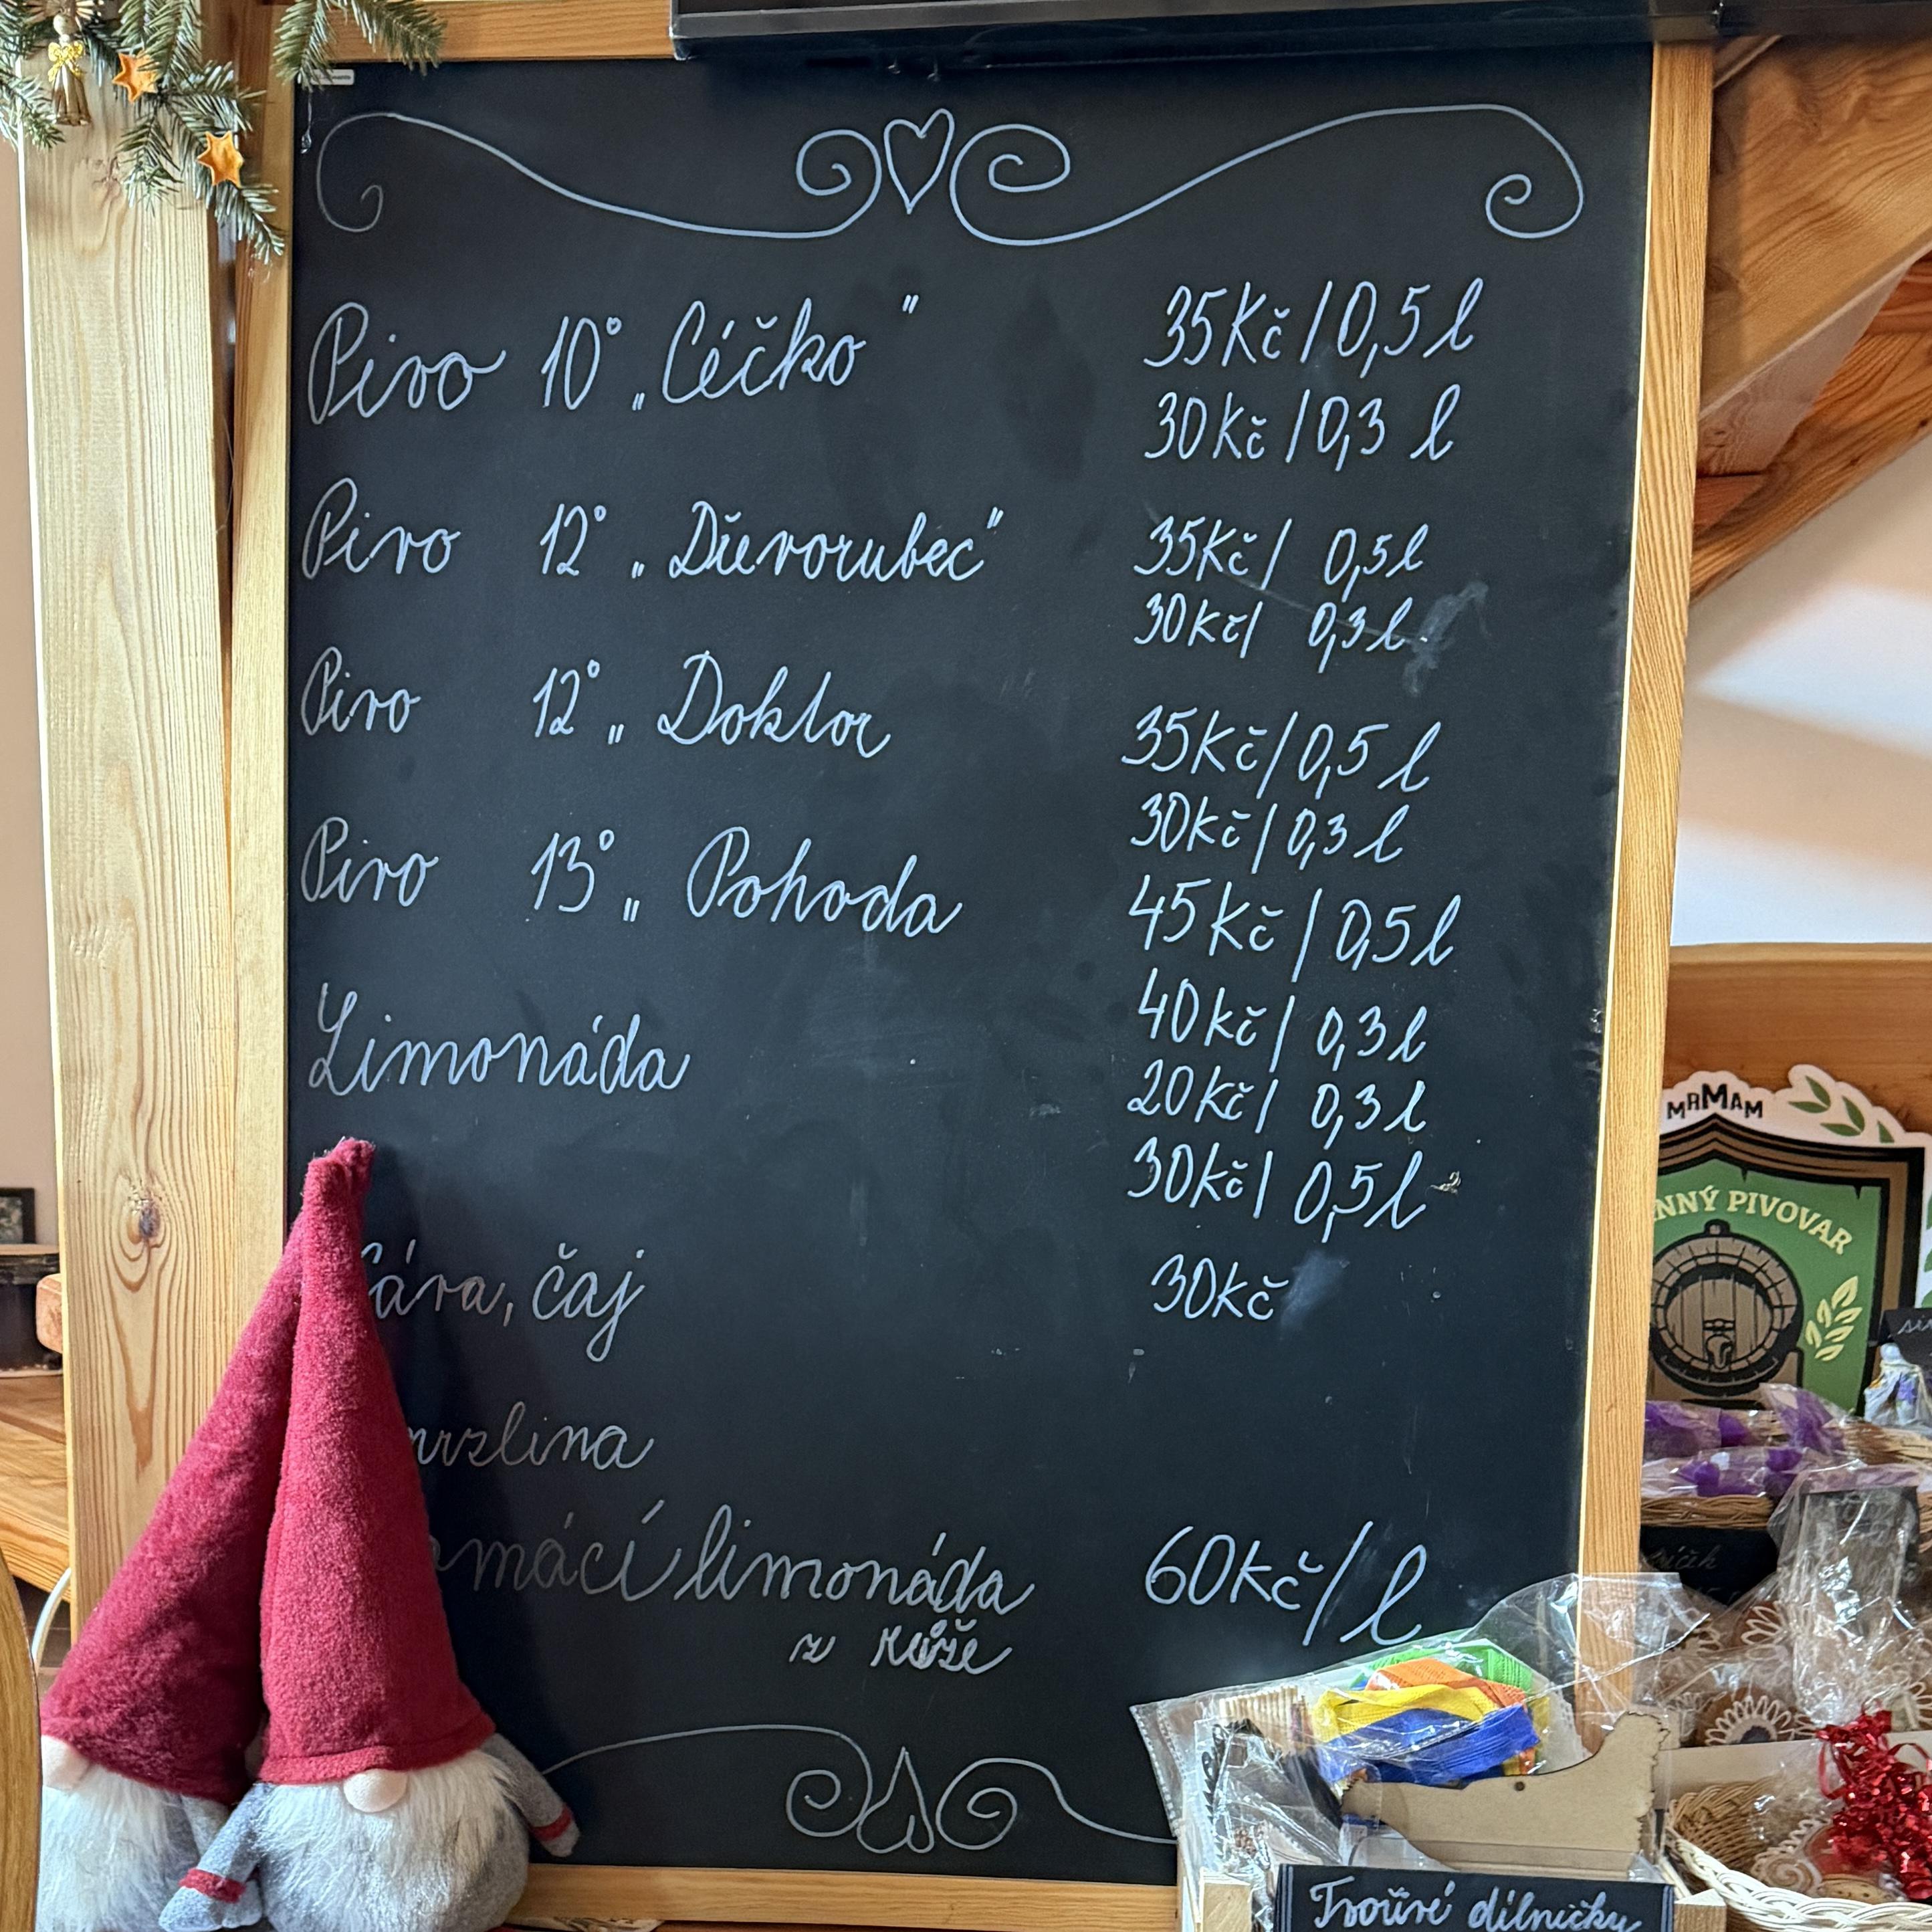 Pivo 10° „Céčko" 35Kč/0,5 l
30Kč/0,3 l
Pivo 12° „Dřevorubec" 35Kč/ 0,5l
30Kč/ 0,3l
Pivo 12° „Doktor 35Kč/0,5 l
30Kč/0,3 l
Pivo 13° „Pohoda 45Kč/0,5l
40Kč/ 0,3l
Limonáda 20Kč/ 0,3 l
30Kč/ 0,5l
káva, čaj 30Kč
mrzlina
omácí limonáda 60Kč/l
z růže
MRMAM
NNÝ PIVOVAR
Tvořivé dílničky